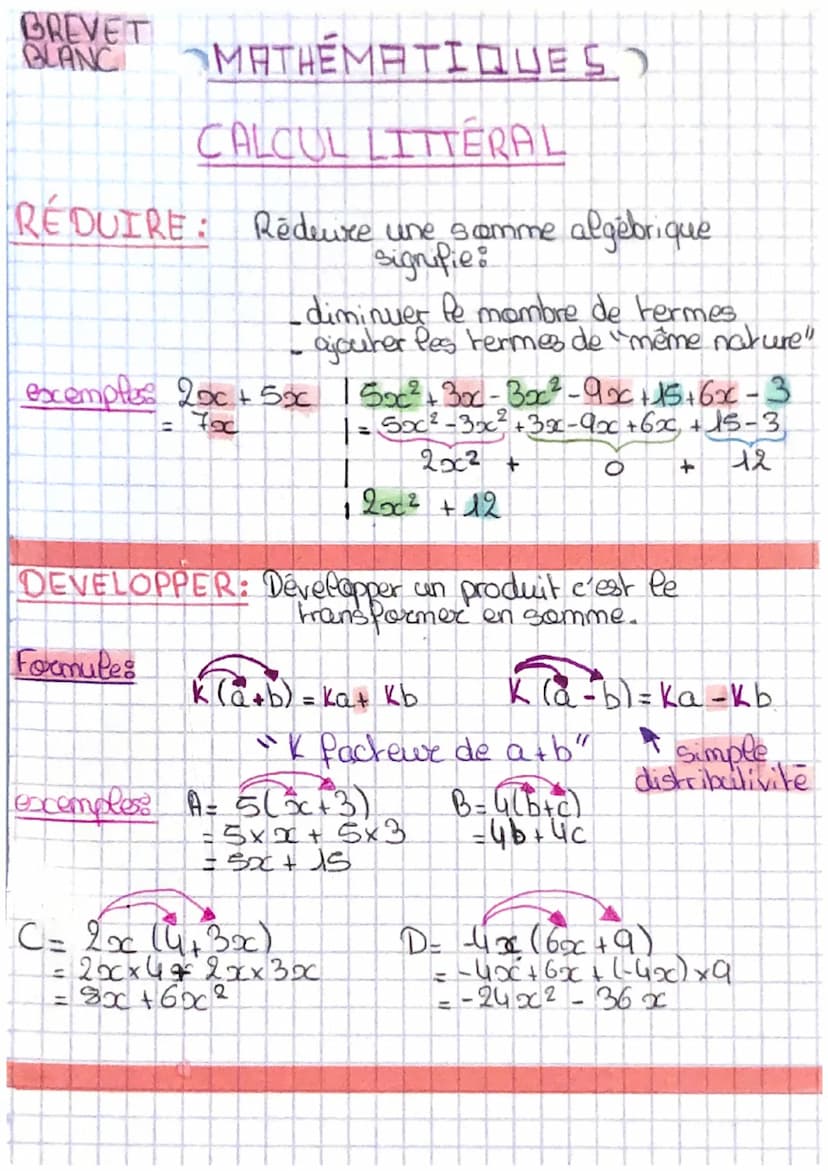 BREVET
BLANC
MATHÉMATIQUES
CALCUL LITTÉRAL
RÉDUIRE : Réduire une somme algébrique
signifie :
- diminuer le nombre de termes
- ajouter les termes de "même nature"
exemples : 2x + 5x
= 7x
5x² + 3x - 3x² - 9x + 15 + 6x - 3
= 5x² - 3x² + 3x - 9x + 6x + 15 - 3
2x² + 0 + 12
2x² + 12
DEVELOPPER : Développer un produit c'est le
transformer en somme.
Formules
K (a+b) = Ka + Kb
K (a - b) = Ka - Kb
"K facteur de a+b"
simple
distributivité
exemples :
A = 5(x+3)
= 5 × x + 5 × 3
= 5x + 15
B = 4(b+c)
= 4b + 4c
C = 2x (4 + 3x)
= 2x × 4 + 2x × 3x
= 8x + 6x²
D = -4x (6x + 9)
= -4x + 6x + (-4x) × 9
= -24x² - 36x